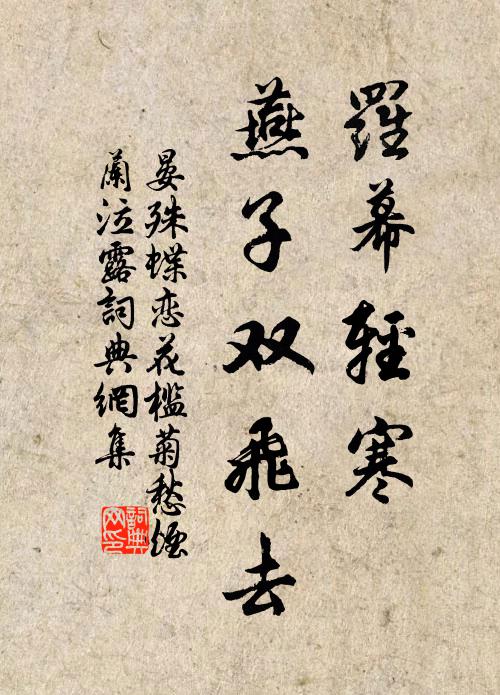 羅幕輕寒
燕子双飛去
晏殊蝶恋花檻菊愁煙
蘭泣露詞典網集
詞典
网印